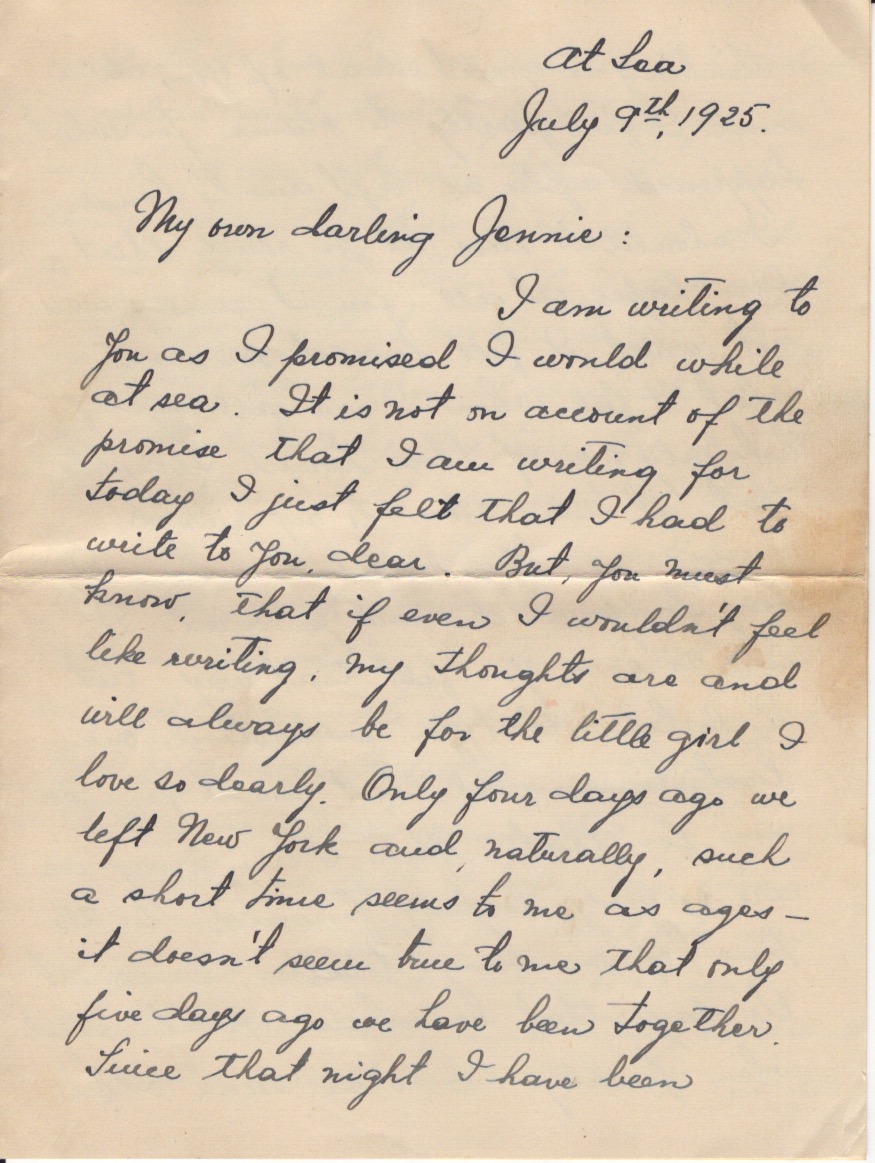 At Sea
July 9th, 1925.
My own darling Jennie :
I am writing to
you as I promised I would while
at sea. It is not on account of the
promise that I am writing for
today I just felt that I had to
write to you, dear. But, you must
know, that if even I wouldn't feel
like writing, my thoughts are and
will always be for the little girl I
love so dearly. Only four days ago we
left New York and, naturally, such
a short time seems to me as ages –
it doesn't seem true to me that only
five days ago we have been together.
Since that night I have been